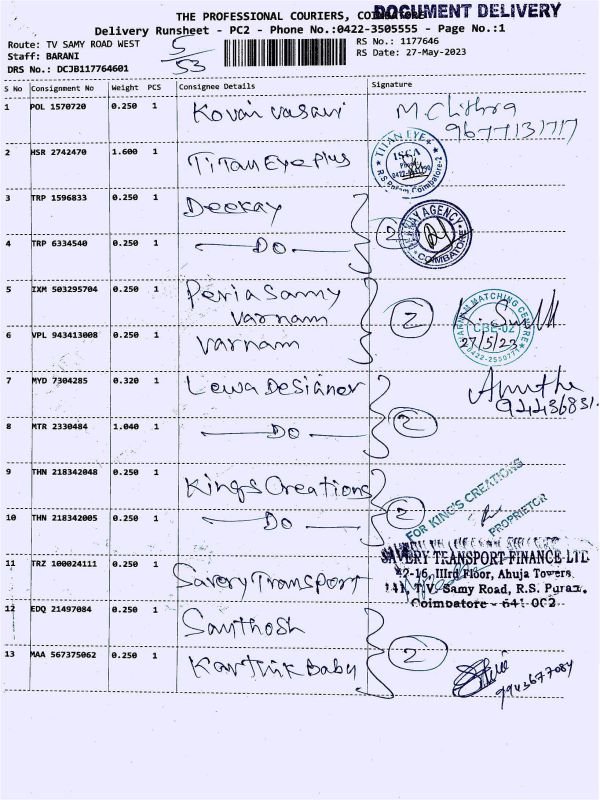 THE PROFESSIONAL COURIERS, COIMBATORE
DOCUMENT DELIVERY
Delivery Runsheet - PC2 - Phone No.:0422-3505555 - Page No.:1
Route: TV SAMY ROAD WEST
Staff: BARANI
DRS No.: DCJB117764601
5/53
RS No.: 1177646
RS Date: 27-May-2023
S No Consignment No Weight PCS Consignee Details Signature
1 POL 1570720 0.250 1 Kovai vasavi M. Chithra
9677131717
2 HSR 2742470 1.600 1 Titan Eye Plus
TITAN EYE+
R.S Puram, Coimbatore-2
3 TRP 1596833 0.250 1 Deekay 2
AGENCY
COIMBATORE
4 TRP 6334540 0.250 1 DO
5 IXM 503295704 0.250 1 Peria Samy
Varnam 2
MATCHING CENTRE
CBE-02
27/5/23
6 VPL 943413008 0.250 1 Varnam
7 MYD 7304285 0.320 1 Lewa Designer 2
8 MTR 2330484 1.040 1 DO
9 THN 218342048 0.250 1 Kings Creations 2
FOR KING'S CREATIONS
PROPRIETOR
10 THN 218342005 0.250 1 DO
11 TRZ 100024111 0.250 1 Savery Transport
SAVERY TRANSPORT FINANCE LTD
42-16, IIIrd Floor, Ahuja Towers
141, T.V. Samy Road, R.S. Puram,
Coimbatore - 641 002
12 EDQ 21497084 0.250 1 Santhosh 2
13 MAA 567375062 0.250 1 Karthik Babu
9943677084